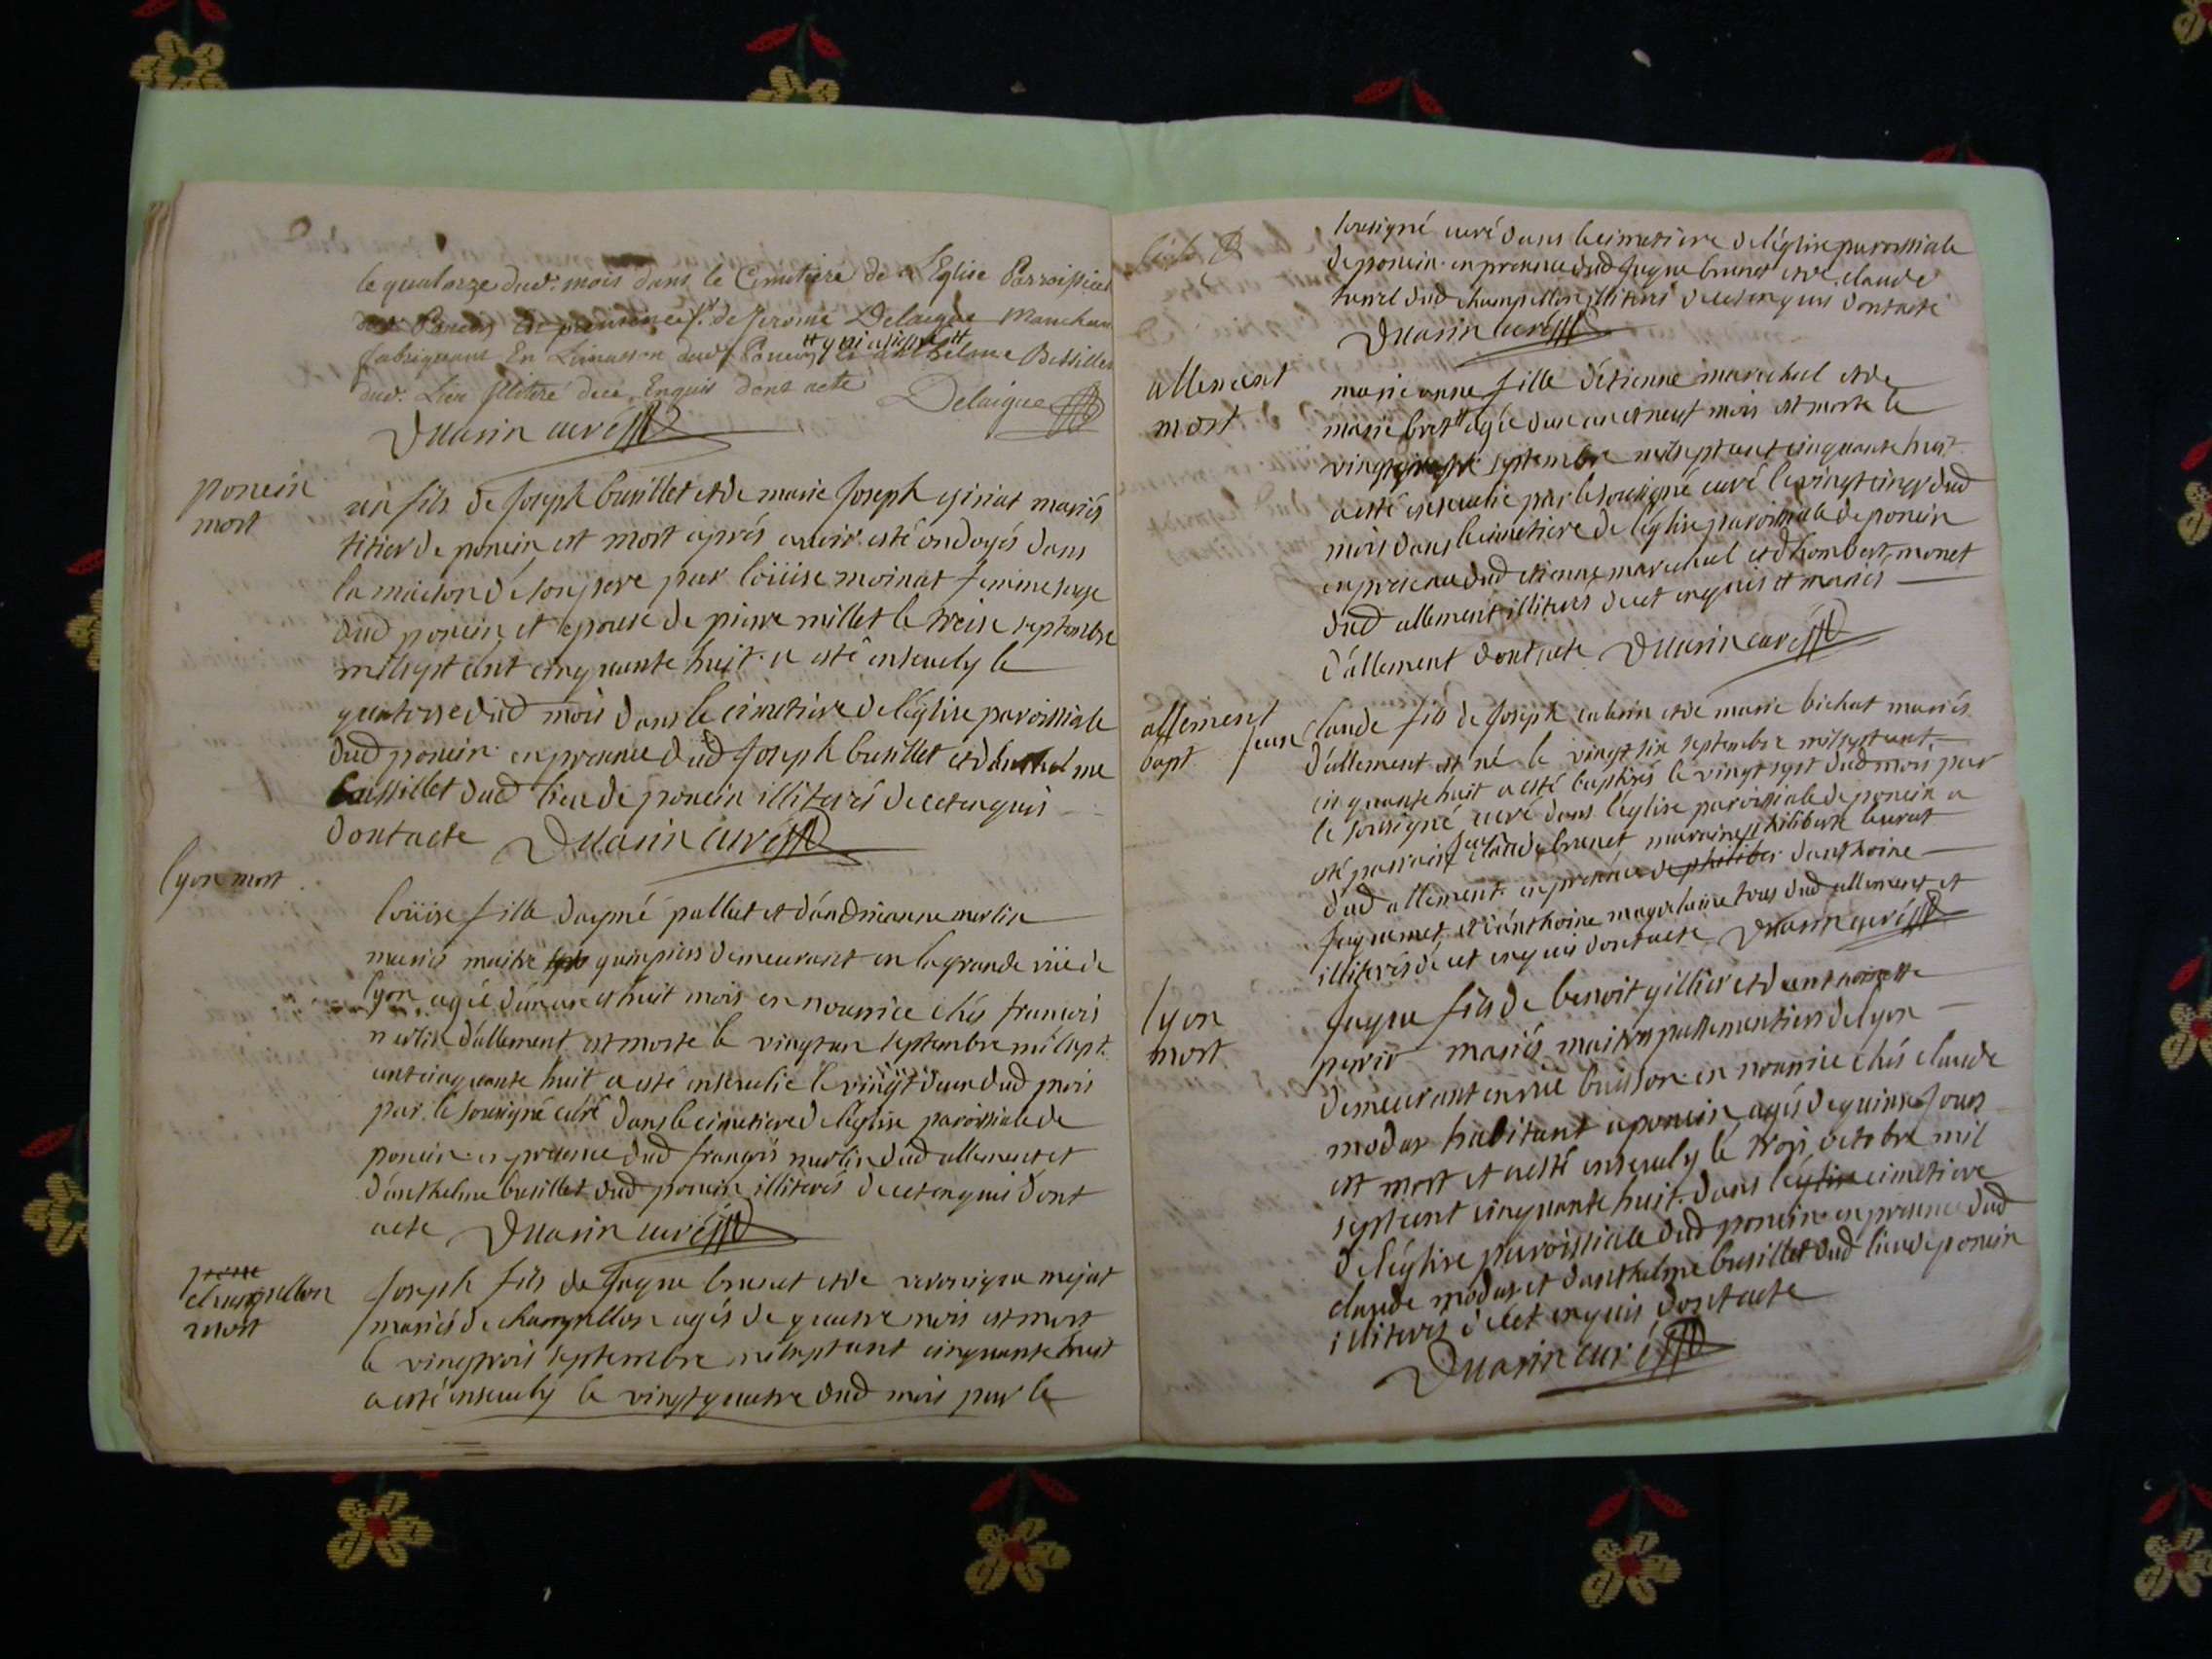 le quatorze dud. mois dans le Cimetiere de l'Eglise Parroissiel
dud Poncin en presence de Sr. de jerome Delaigue Marchand
fabriquant En Limasson dud Poncin et anthelme Bessillet
# qui a signé #
dud. Lieu illiteré dece Enquis dont acte Delaigue
DMarin curé
poncin
mort
un fils de Joseph busillet et de marie Joseph mariés
titier de poncin est mort aprés avoir esté ondoyés dans
la maison de son pere par loüise moinat femme sage
dud poncin et epouse de pierre millet le treise septembre
milsept cent cinquante huit a esté ensevely le
quatorse dud mois dans le cimetiere de léglise paroissiale
dud poncin en presence dud Joseph busillet et danthelme
baissillet dud lieu de poncin illiterés de cet enquis
dont acte DMarin curé
lyon mort
loüise fille daymé palliet et d'andrieanne merlin
mariés maitre guimpiers demeurant en la grande rüe de
lyon agée d'un an et huit mois en nourrice chés francois
merlin d'allement est morte le vingt un septembre milsept
cent cinquante huit a esté ensevelie le vingt deux dud mois
par le sousigné curé dans le cimetiere de léglise paroissiale de
poncin en presence dud françois merlin dud allement et
d'anthelme busillet dud poncin illiterés de cet enquis dont
acte DMarin curé
champellon
mort
Joseph fils de Jaque brunet et de veronique mejat
mariés de champellon agés de quatre mois est mort
le vingt trois septembre milseptcent cinquante huit
a esté ensevely le vingt quatre dud mois par le
sousigné curé dans le cimetiere de léglise paroissiale
de poncin en presence dud Jaque brunet et de claude
dud champellon illiterés de cet enquis dont acte
DMarin curé
allement
mort
marie anne fille détienne marechal et de
marie bret # agée dun an et neuf mois est morte le
vingt septembre milsept cent cinquante huit
a esté ensevelie par le sousigné curé le vingt cinq dud
mois dans le cimetiere de léglise paroissiale de poncin
en presence dud etienne marechal et d'hombert monet
dud allement illiterés de cet enquis # mariés
d'allement dont acte DMarin curé
allement
bapt
Jean claude fils de Joseph et de marie bichat mariés
d'allement est né le vingt six septembre milseptcent
cinquante huit a esté baptisés le vingt sept dud mois par
le sousigné curé dans l'église paroissiale de poncin a
esté parrain Jean claude brunet maraine philiberte
dud allement en presence de philiber danthoine
Juquemet et d'anthoine magdelaine tous dud allement et
illiterés de cet enquis dont acte DMarin curé
lyon
mort
Jaque fils de benoit gillier et d'anthoinette
mariés maitres passementiers de lyon
demeurant en rüe buisson en nourrice chés claude
modas habitant a poncin agés de quinse Jours
est mort et a esté ensevely le trois octobre mil
septcent cinquante huit dans léglise cimetiere
de léglise paroissiale dud poncin en presence dud
claude modas et danthelme busillet dud lieu de poncin
illiterés de cet enquis dont acte
DMarin curé